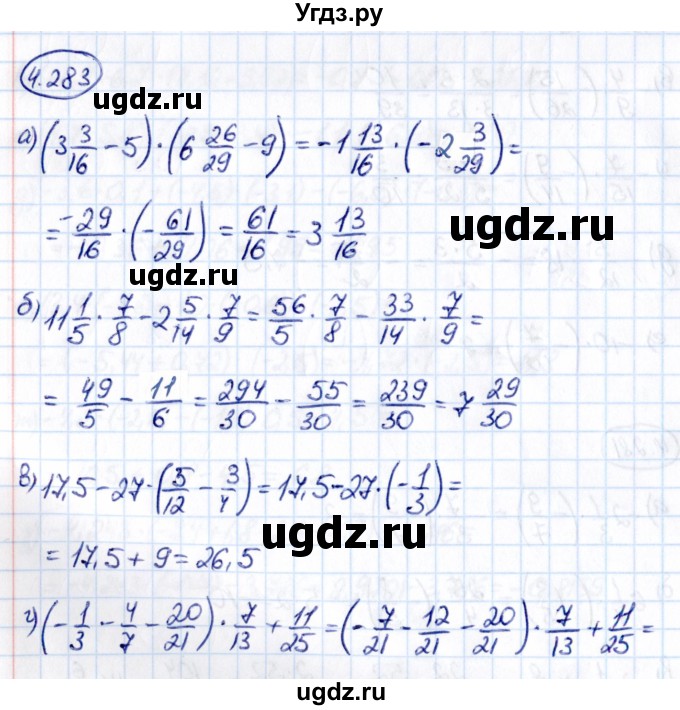 Угдз.ру
4.283
ugdz.ru
а) (3 3/16 - 5) · (6 26/29 - 9) = -1 13/16 · (-2 3/29) =
ugdz.ru
= -29/16 · (-61/29) = 61/16 = 3 13/16
ugdz.ru
б) 11 1/5 · 7/8 - 2 5/14 · 7/9 = 56/5 · 7/8 - 33/14 · 7/9 =
= 49/5 - 11/6 = 294/30 - 55/30 = 239/30 = 7 29/30
ugdz.ru
в) 17,5 - 27 · (5/12 - 3/4) = 17,5 - 27 · (-1/3) =
ugdz.ru
= 17,5 + 9 = 26,5
ugdz.ru
г) (-1/3 - 4/7 - 20/21) · 7/13 + 11/25 = (-7/21 - 12/21 - 20/21) · 7/13 + 11/25 =
ugdz.ru
ugdz.ru